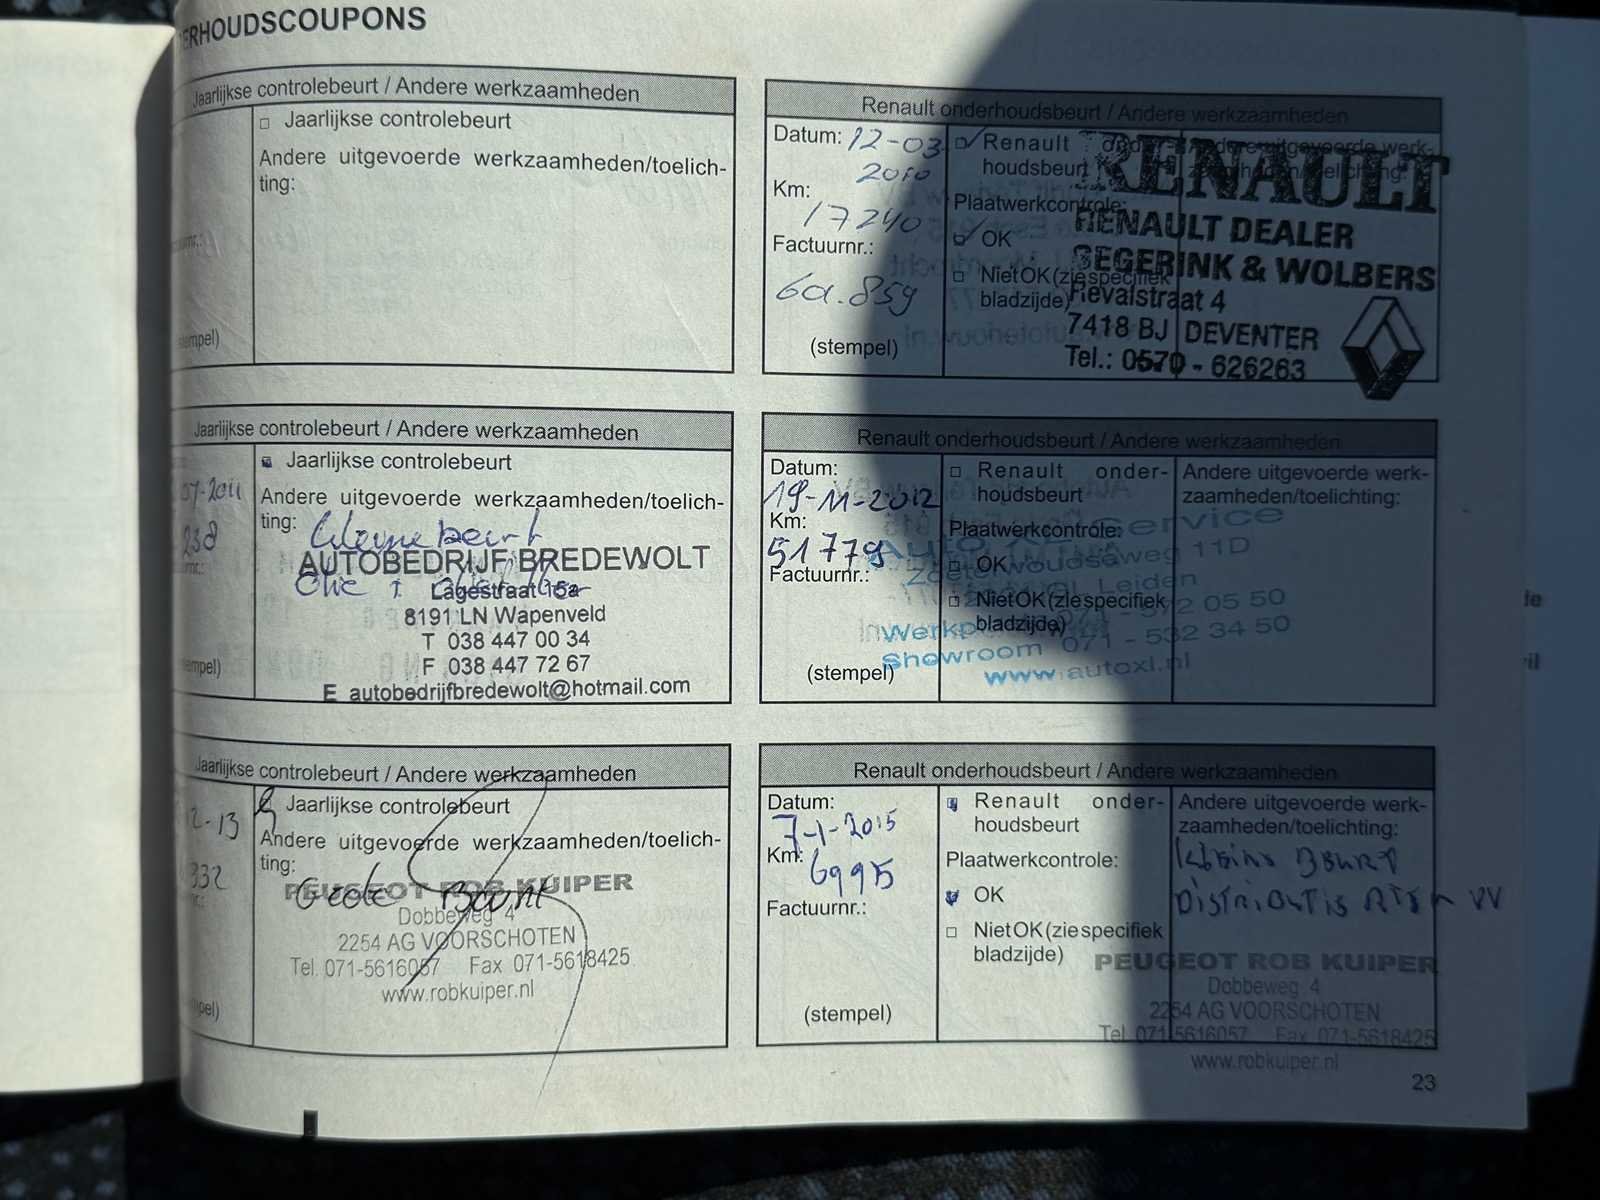 ERHOUDSCOUPONS
Jaarlijkse controlebeurt / Andere werkzaamheden
Jaarlijkse controlebeurt
Andere uitgevoerde werkzaamheden/toelich-
ting:
Renault onderhoudsbeurt / Andere werkzaamheden
Datum: 12-03
2010
Km:
17240
Factuurnr.:
(stempel)
Renault
houdsbeurt
Plaatwerkcontrole:
OK
Niet OK (zie specifiek
bladzijde)
RENAULT
RENAULT DEALER
SEGERINK & WOLBERS
Revalstraat 4
7418 BJ DEVENTER
Tel.: 0570 - 626263
Jaarlijkse controlebeurt / Andere werkzaamheden
07-2011
238
Jaarlijkse controlebeurt
Andere uitgevoerde werkzaamheden/toelich-
ting:
AUTOBEDRIJF BREDEWOLT
Lagestraat 15a
8191 LN Wapenveld
T 038 447 00 34
F 038 447 72 67
E autobedrijfbredewolt@hotmail.com
Renault onderhoudsbeurt / Andere werkzaamheden
Datum:
19-11-2012
Km:
51779
Factuurnr.:
(stempel)
Renault onder-
houdsbeurt
Plaatwerkcontrole:
OK
Niet OK (zie specifiek
bladzijde)
Andere uitgevoerde werk-
zaamheden/toelichting:
Service
Zoeterwoudseweg 11D
Leiden
Showroom 071 - 532 34 50
www.autoxl.nl
Jaarlijkse controlebeurt / Andere werkzaamheden
12-13
332
Jaarlijkse controlebeurt
Andere uitgevoerde werkzaamheden/toelich-
ting:
Grote Beurt
PEUGEOT ROB KUIPER
Dobbeweg 4
2254 AG VOORSCHOTEN
Tel. 071-5616057 Fax 071-5618425
www.robkuiper.nl
Renault onderhoudsbeurt / Andere werkzaamheden
Datum:
7-1-2015
Km:
69975
Factuurnr.:
(stempel)
Renault onder-
houdsbeurt
Plaatwerkcontrole:
OK
Niet OK (zie specifiek
bladzijde)
Andere uitgevoerde werk-
zaamheden/toelichting:
Kleine Beurt
Distributie
PEUGEOT ROB KUIPER
Dobbeweg 4
2254 AG VOORSCHOTEN
Tel. 071-5616057 Fax 071-5618425
www.robkuiper.nl
23